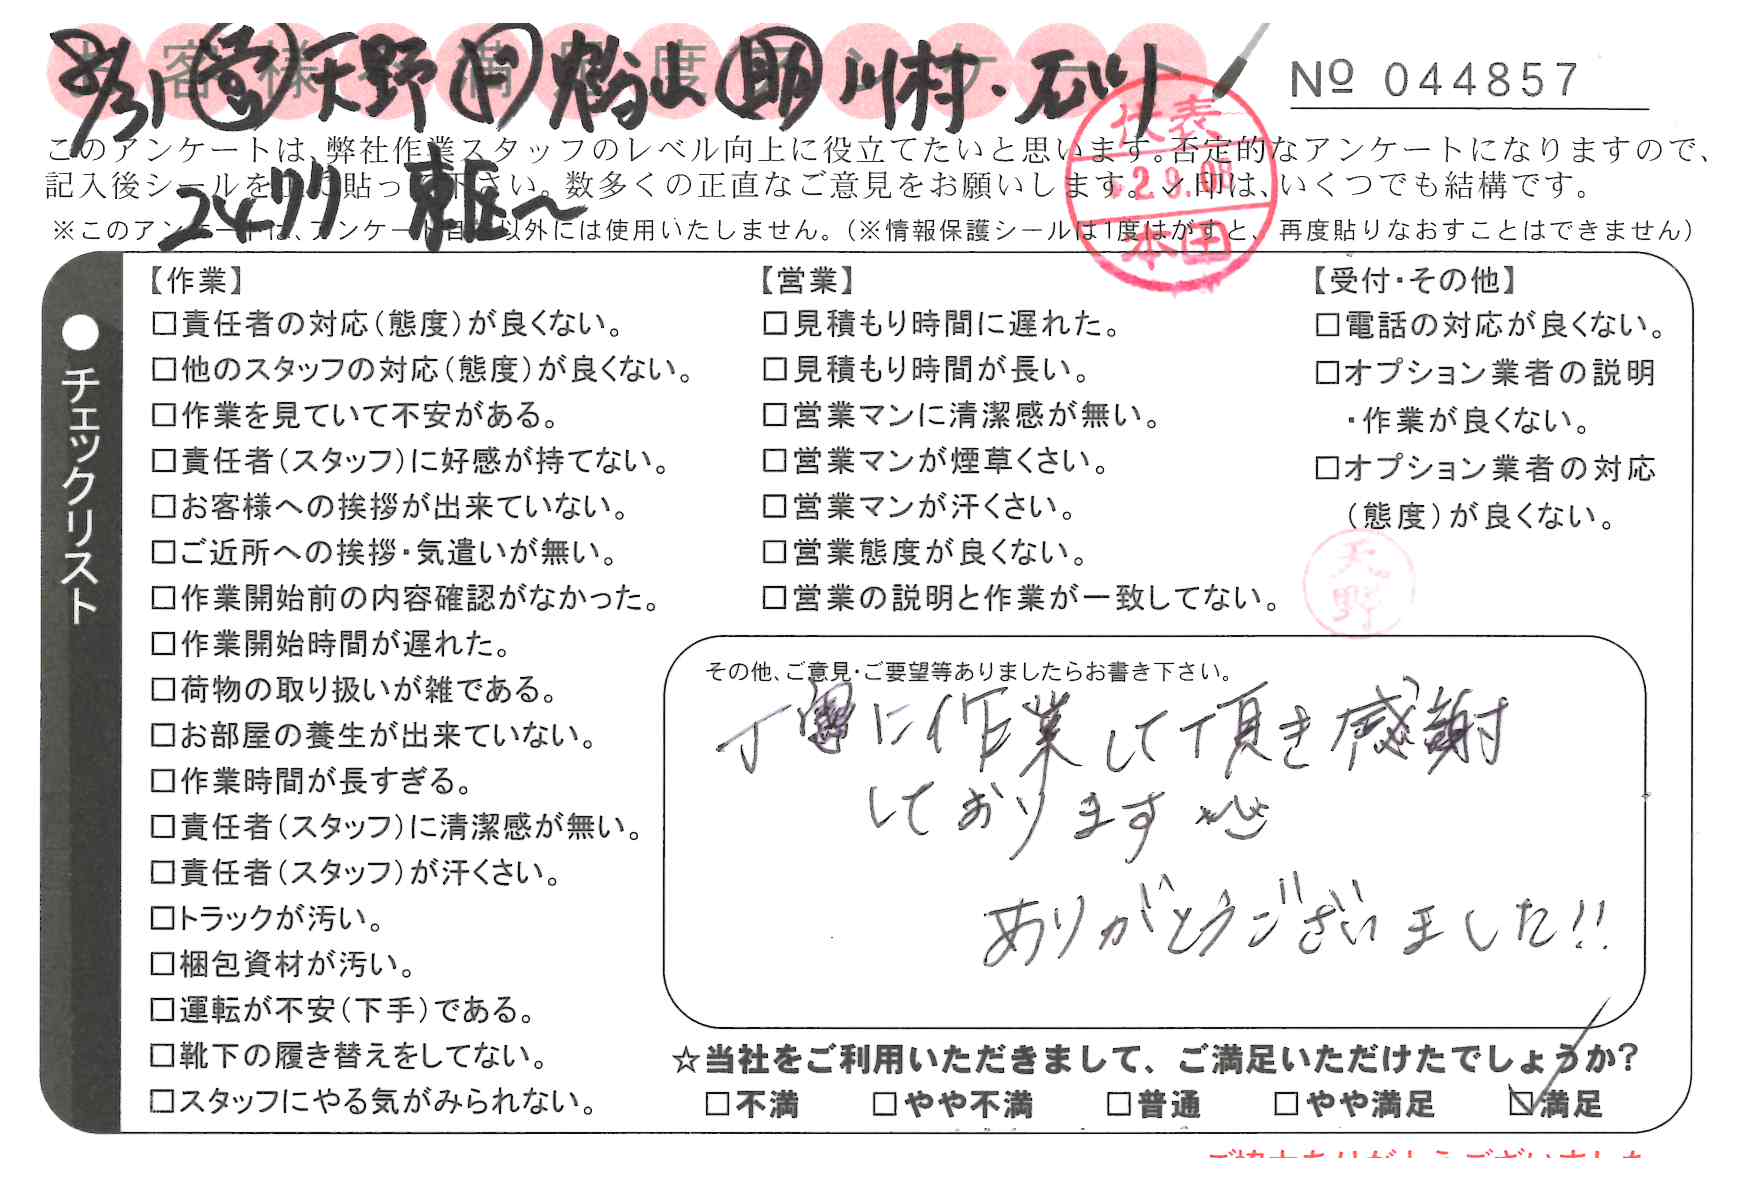 お客様不満足度アンケート
8/31 営 天野 ド 東 助 川村・石川
№ 044857
このアンケートは、弊社作業スタッフのレベル向上に役立てたいと思います。否定的なアンケートになりますので、
記入後シールを 貼って下さい。数多くの正直なご意見をお願いします。✓印は、いくつでも結構です。
※このアンケートは、アンケート 以外には使用いたしません。(※情報保護シールは1度はがすと、再度貼りなおすことはできません)
東区〜
代表
29.08
本田
●チェックリスト
【作業】
□責任者の対応(態度)が良くない。
□他のスタッフの対応(態度)が良くない。
□作業を見ていて不安がある。
□責任者(スタッフ)に好感が持てない。
□お客様への挨拶が出来ていない。
□ご近所への挨拶・気遣いが無い。
□作業開始前の内容確認がなかった。
□作業開始時間が遅れた。
□荷物の取り扱いが雑である。
□お部屋の養生が出来ていない。
□作業時間が長すぎる。
□責任者(スタッフ)に清潔感が無い。
□責任者(スタッフ)が汗くさい。
□トラックが汚い。
□梱包資材が汚い。
□運転が不安(下手)である。
□靴下の履き替えをしてない。
□スタッフにやる気がみられない。
【営業】
□見積もり時間に遅れた。
□見積もり時間が長い。
□営業マンに清潔感が無い。
□営業マンが煙草くさい。
□営業マンが汗くさい。
□営業態度が良くない。
□営業の説明と作業が一致してない。
【受付・その他】
□電話の対応が良くない。
□オプション業者の説明
・作業が良くない。
□オプション業者の対応
(態度)が良くない。
天野
その他、ご意見・ご要望等ありましたらお書き下さい。
丁寧に作業して頂き感謝
しております
ありがとうございました!!
☆当社をご利用いただきまして、ご満足いただけたでしょうか?
□不満 □やや不満 □普通 □やや満足 ☑満足
ご協力ありがとうございました